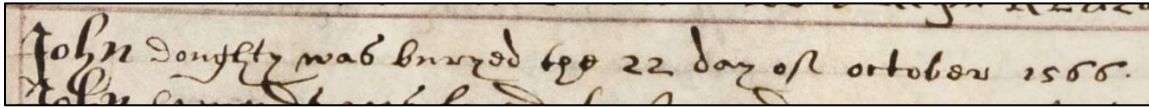 John doughty was buryed the 22 day of october 1566.